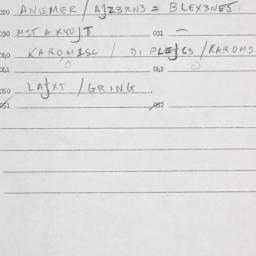 020 ANEMER / AJZ3RN3 = BLEX3NE5.
030 MST AKVOJT 031 —
040 KAROM1SL / DIPLEJG3 / KAROMS
041 042
050 LAJXT / GRING
051 052